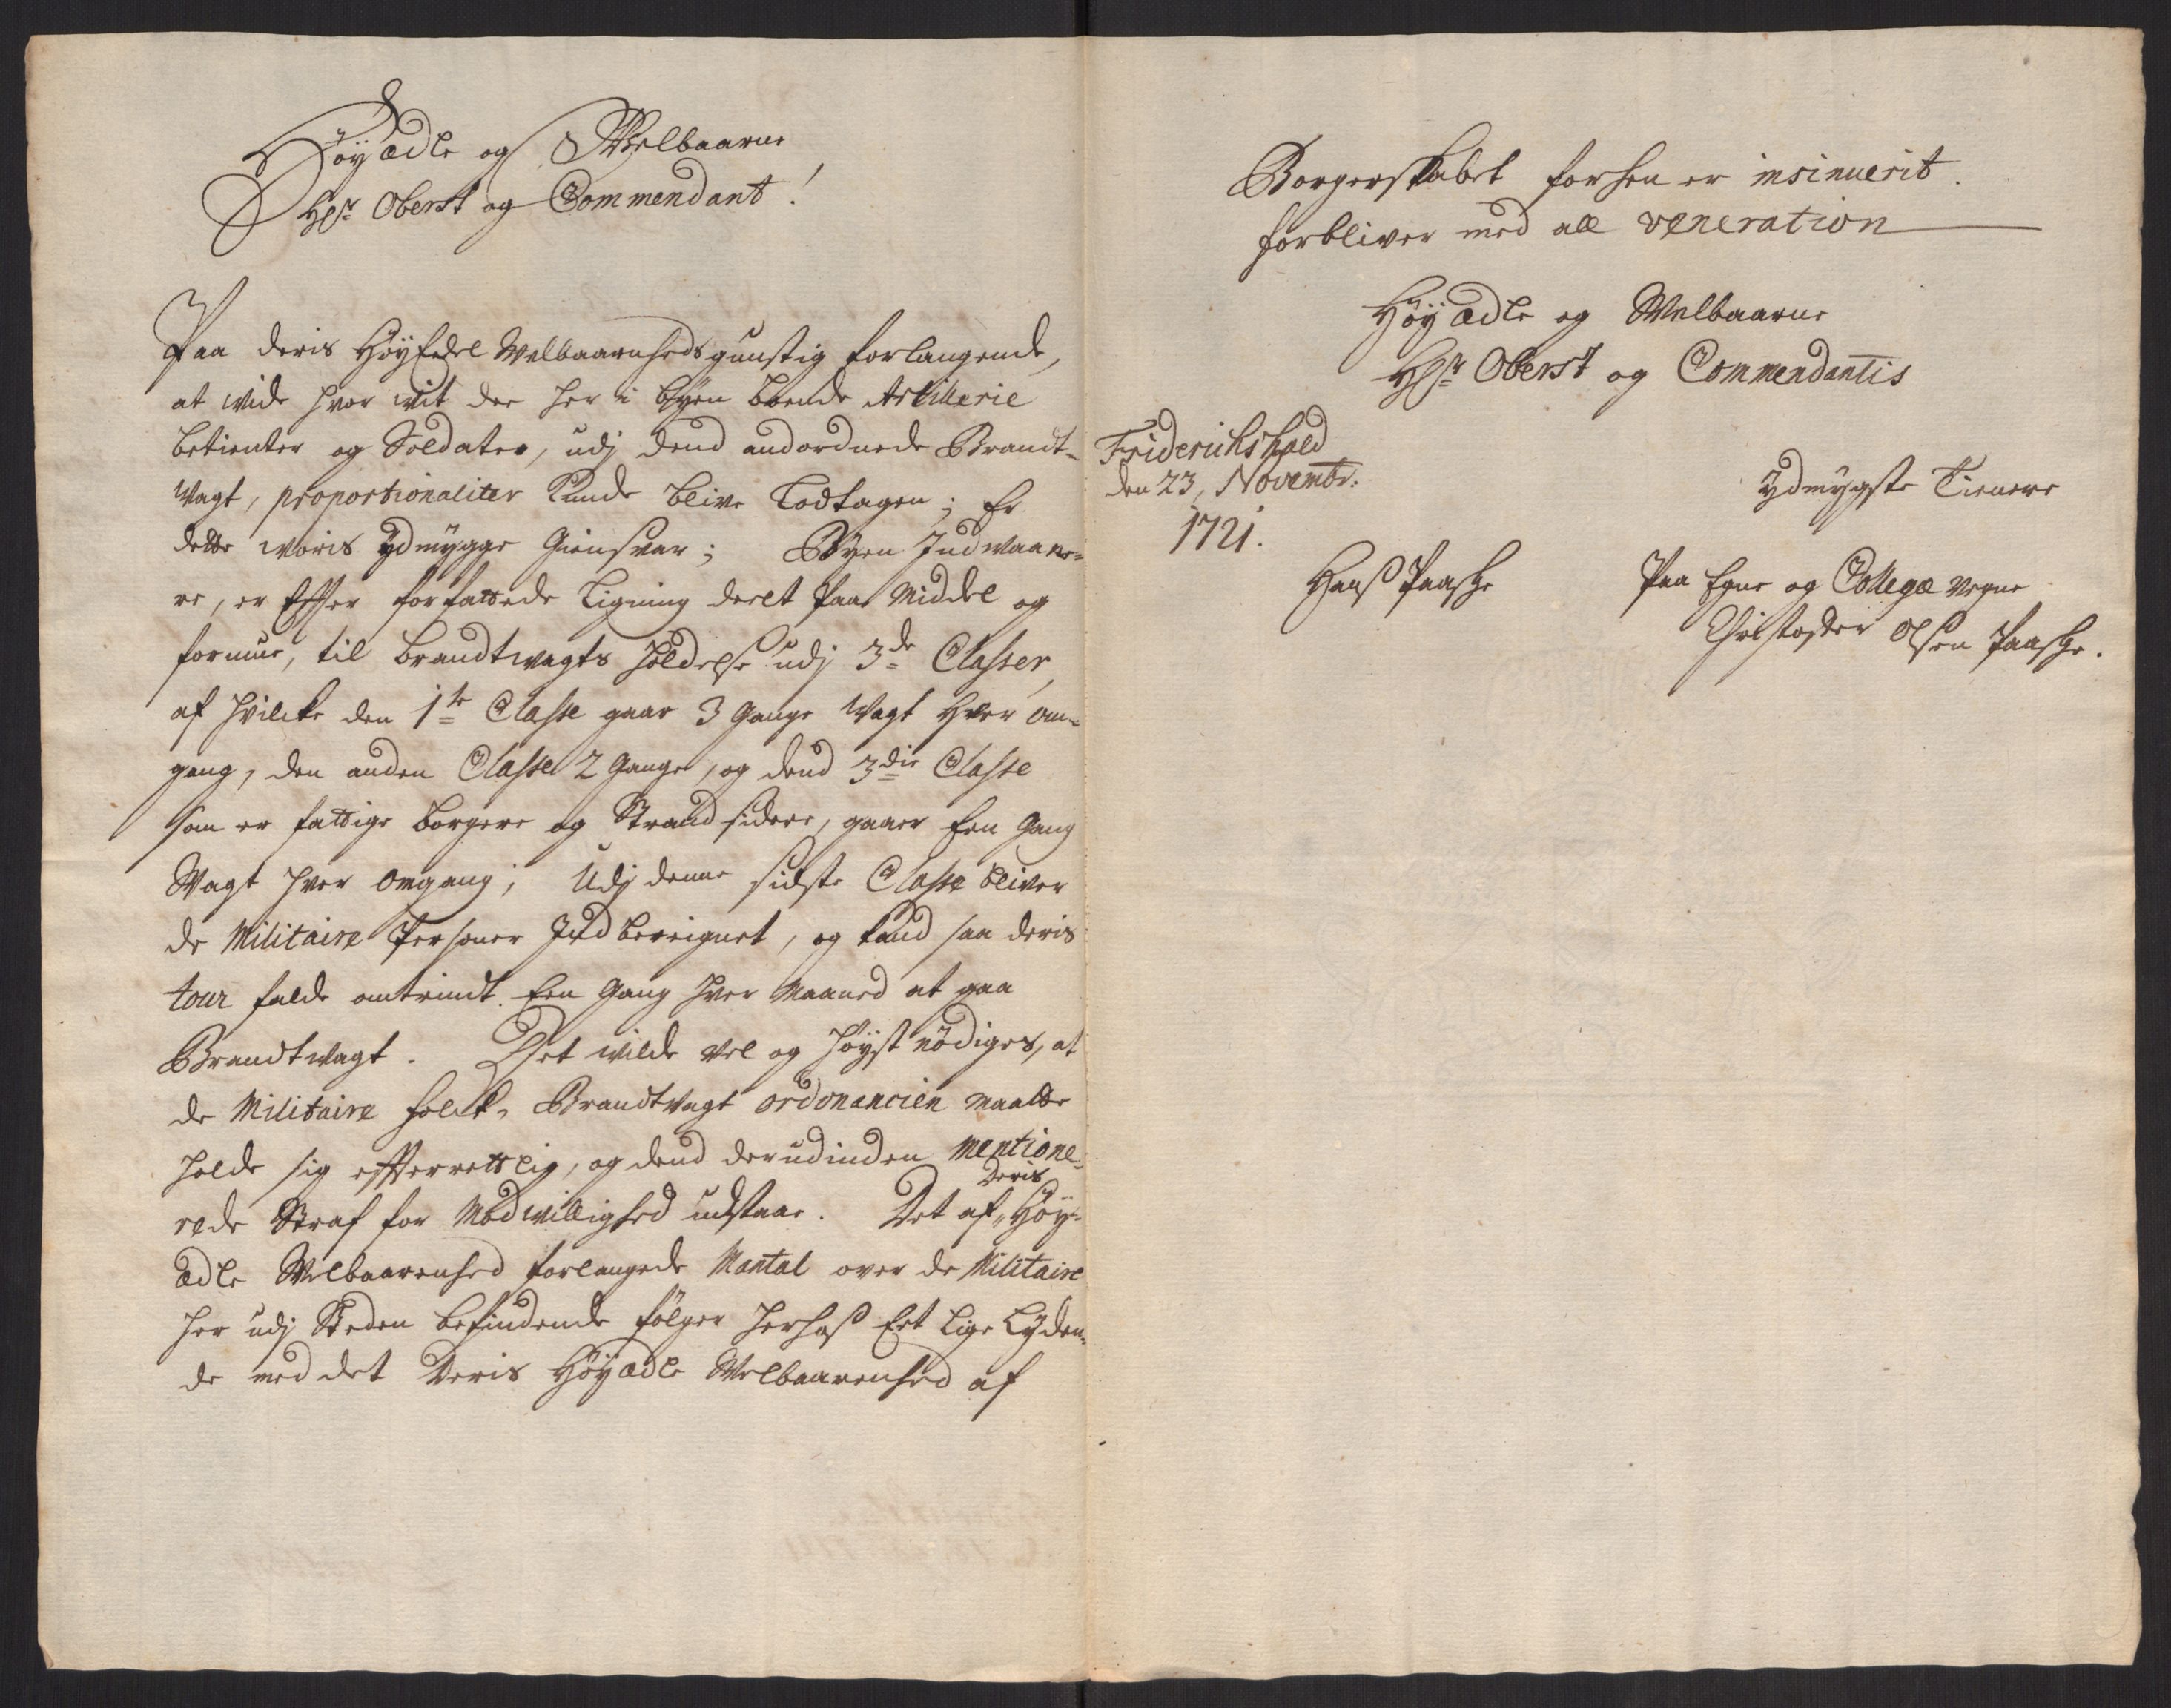 Høyædle og Welbaarne
Hr. Oberst og Commendant!
Paa deris HøyEdel Welbaarnheds gunstig forlangende,
at wide hvor wit der her i Byen boende Artillerie
betienter og Soldater, udj dend andordnede Brandt-
Vagt, proportionaliter kunde blive Lodtagen; Er
dette woris ydmygge Giensvar; Byen Indwaane-
re, er Effter forfattede Ligning deelt paa Middel og
formue, til brandtwagts holdelse udj 3de Classer,
af hvilcke den 1te Classe gaar 3 Gange Vagt Hver om-
gang, den anden Classe 2 Gange, og dend 3die Classe
som er fattige borgere og Strandsidere, gaaer Een Gang
Wagt hver omgang; Udj denne sidste Classe bliver
de Militaire Personer Indbereignet, og kand saa deris
tour falde omtrindt Een Gang hver Maaned at gaa
Brandtwagt. Det wilde vel og høyst nødiges, at
de Militaire folck, Brandtvagt ordonancien maatte
holde sig effterrettelig, og dend derudinden mentione-
rede Straf for Modwillighed udstaae. Det af Deris Høy-
ædle Welbaarenhed forlangede Mantal over de Militaire
her udj Steden befindende følger herhos Eet Lige Lyden-
de med det Deris Høyædle Welbaarenhed af
Borgerskabet forhen er insinuerit.
forbliver med all veneration
Høyædle og Welbaarne
Hr. Oberst og Commendantis
Friderichshald
den 23, Novembr:
1721.
ydmygste Tienere
Hans Paasche
Paa Egne og Collegæ Vegne
Christoffer Olsen Paasche.